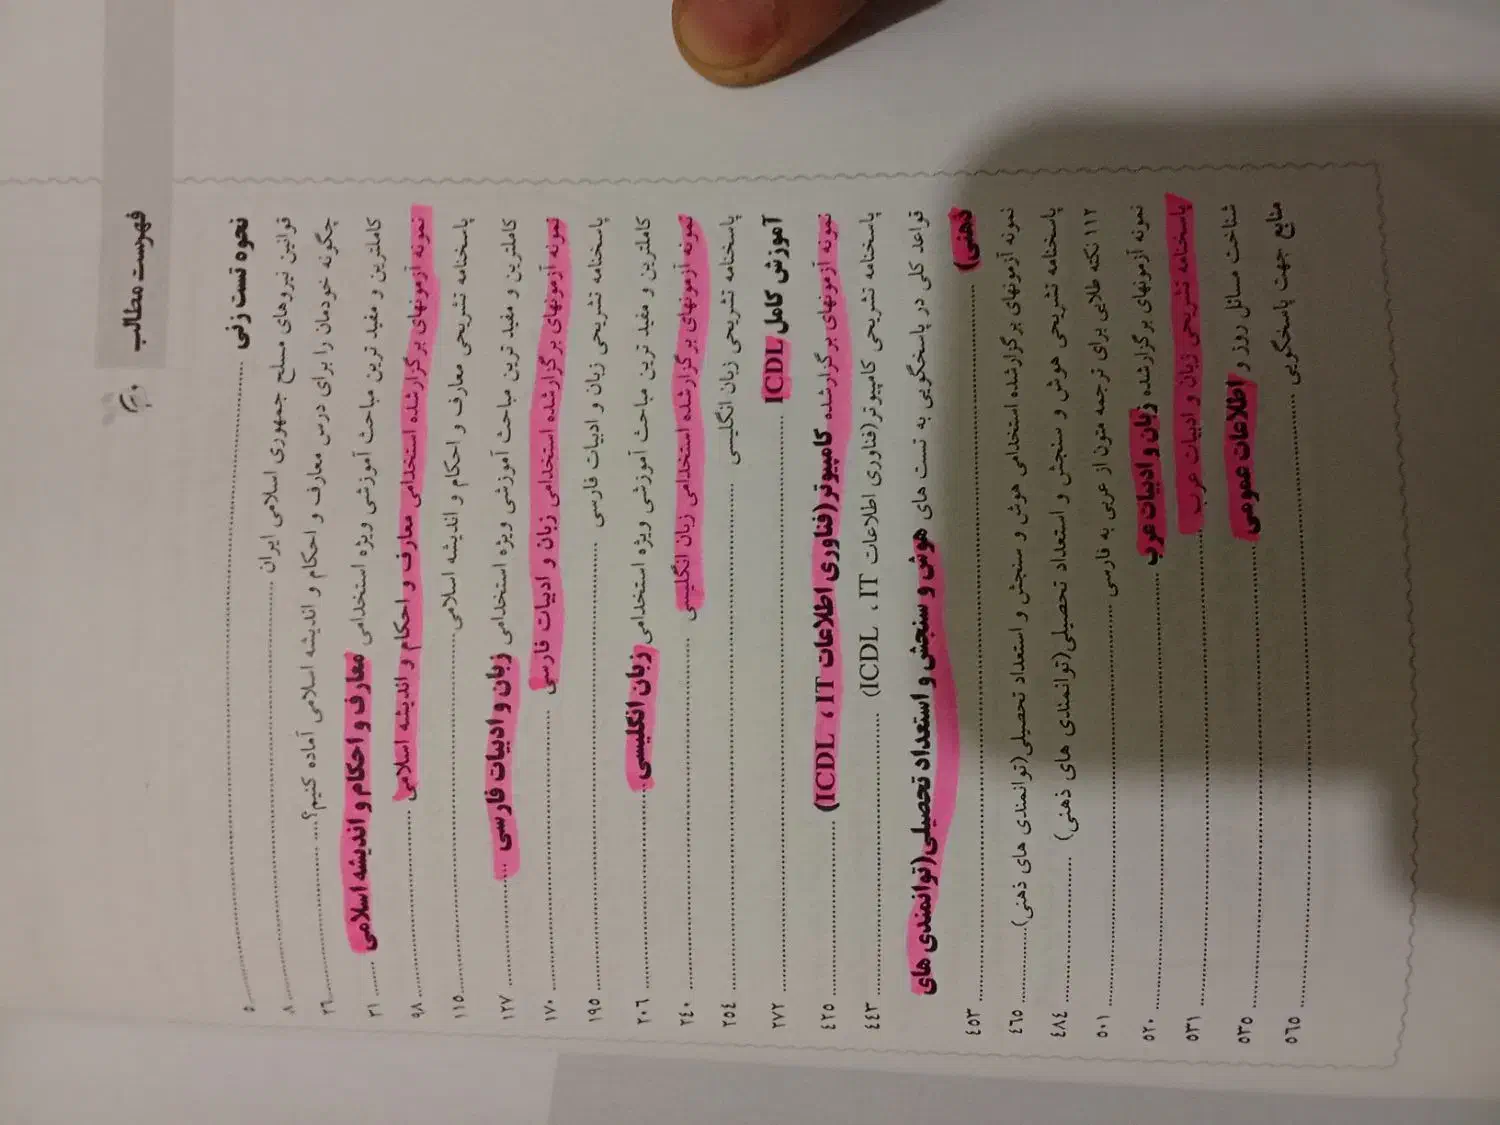 فهرست مطالب
نحوه تست زنی ........ ۵
قوانین نیروهای مسلح جمهوری اسلامی ایران ........ ۸
چگونه خودمان را برای درس معارف و احکام و اندیشه اسلامی آماده کنیم؟ ........ ۲۶
کاملترین و مفید ترین مباحث آموزشی ویژه استخدامی معارف و احکام و اندیشه اسلامی ........ ۳۱
نمونه آزمونهای برگزارشده استخدامی معارف و احکام و اندیشه اسلامی ........ ۹۸
پاسخنامه تشریحی معارف و احکام و اندیشه اسلامی ........ ۱۱۵
کاملترین و مفید ترین مباحث آموزشی ویژه استخدامی زبان و ادبیات فارسی ........ ۱۲۷
نمونه آزمونهای برگزارشده استخدامی زبان و ادبیات فارسی ........ ۱۷۰
پاسخنامه تشریحی زبان و ادبیات فارسی ........ ۱۹۵
کاملترین و مفید ترین مباحث آموزشی ویژه استخدامی زبان انگلیسی ........ ۲۰۶
نمونه آزمونهای برگزارشده استخدامی زبان انگلیسی ........ ۲۴۰
پاسخنامه تشریحی زبان انگلیسی ........ ۲۵۴
آموزش کامل ICDL ........ ۲۷۲
نمونه آزمونهای برگزارشده کامپیوتر(فناوری اطلاعات ICDL ، IT) ........ ۴۲۵
پاسخنامه تشریحی کامپیوتر(فناوری اطلاعات ICDL ، IT) ........ ۴۴۳
قواعد کلی در پاسخگویی به تست های هوش و سنجش و استعداد تحصیلی(توانمندی های
ذهنی) ........ ۴۵۳
نمونه آزمونهای برگزارشده استخدامی هوش و سنجش و استعداد تحصیلی(توانمندی های ذهنی) ........ ۴۶۵
پاسخنامه تشریحی هوش و سنجش و استعداد تحصیلی(توانمندی های ذهنی) ........ ۴۸۴
۱۱۲ نکته طلایی برای ترجمه متون از عربی به فارسی ........ ۵۰۱
نمونه آزمونهای برگزارشده زبان و ادبیات عرب ........ ۵۲۰
پاسخنامه تشریحی زبان و ادبیات عرب ........ ۵۳۱
شناخت مسائل روز و اطلاعات عمومی ........ ۵۳۵
منابع جهت پاسخگویی ........ ۵۶۵